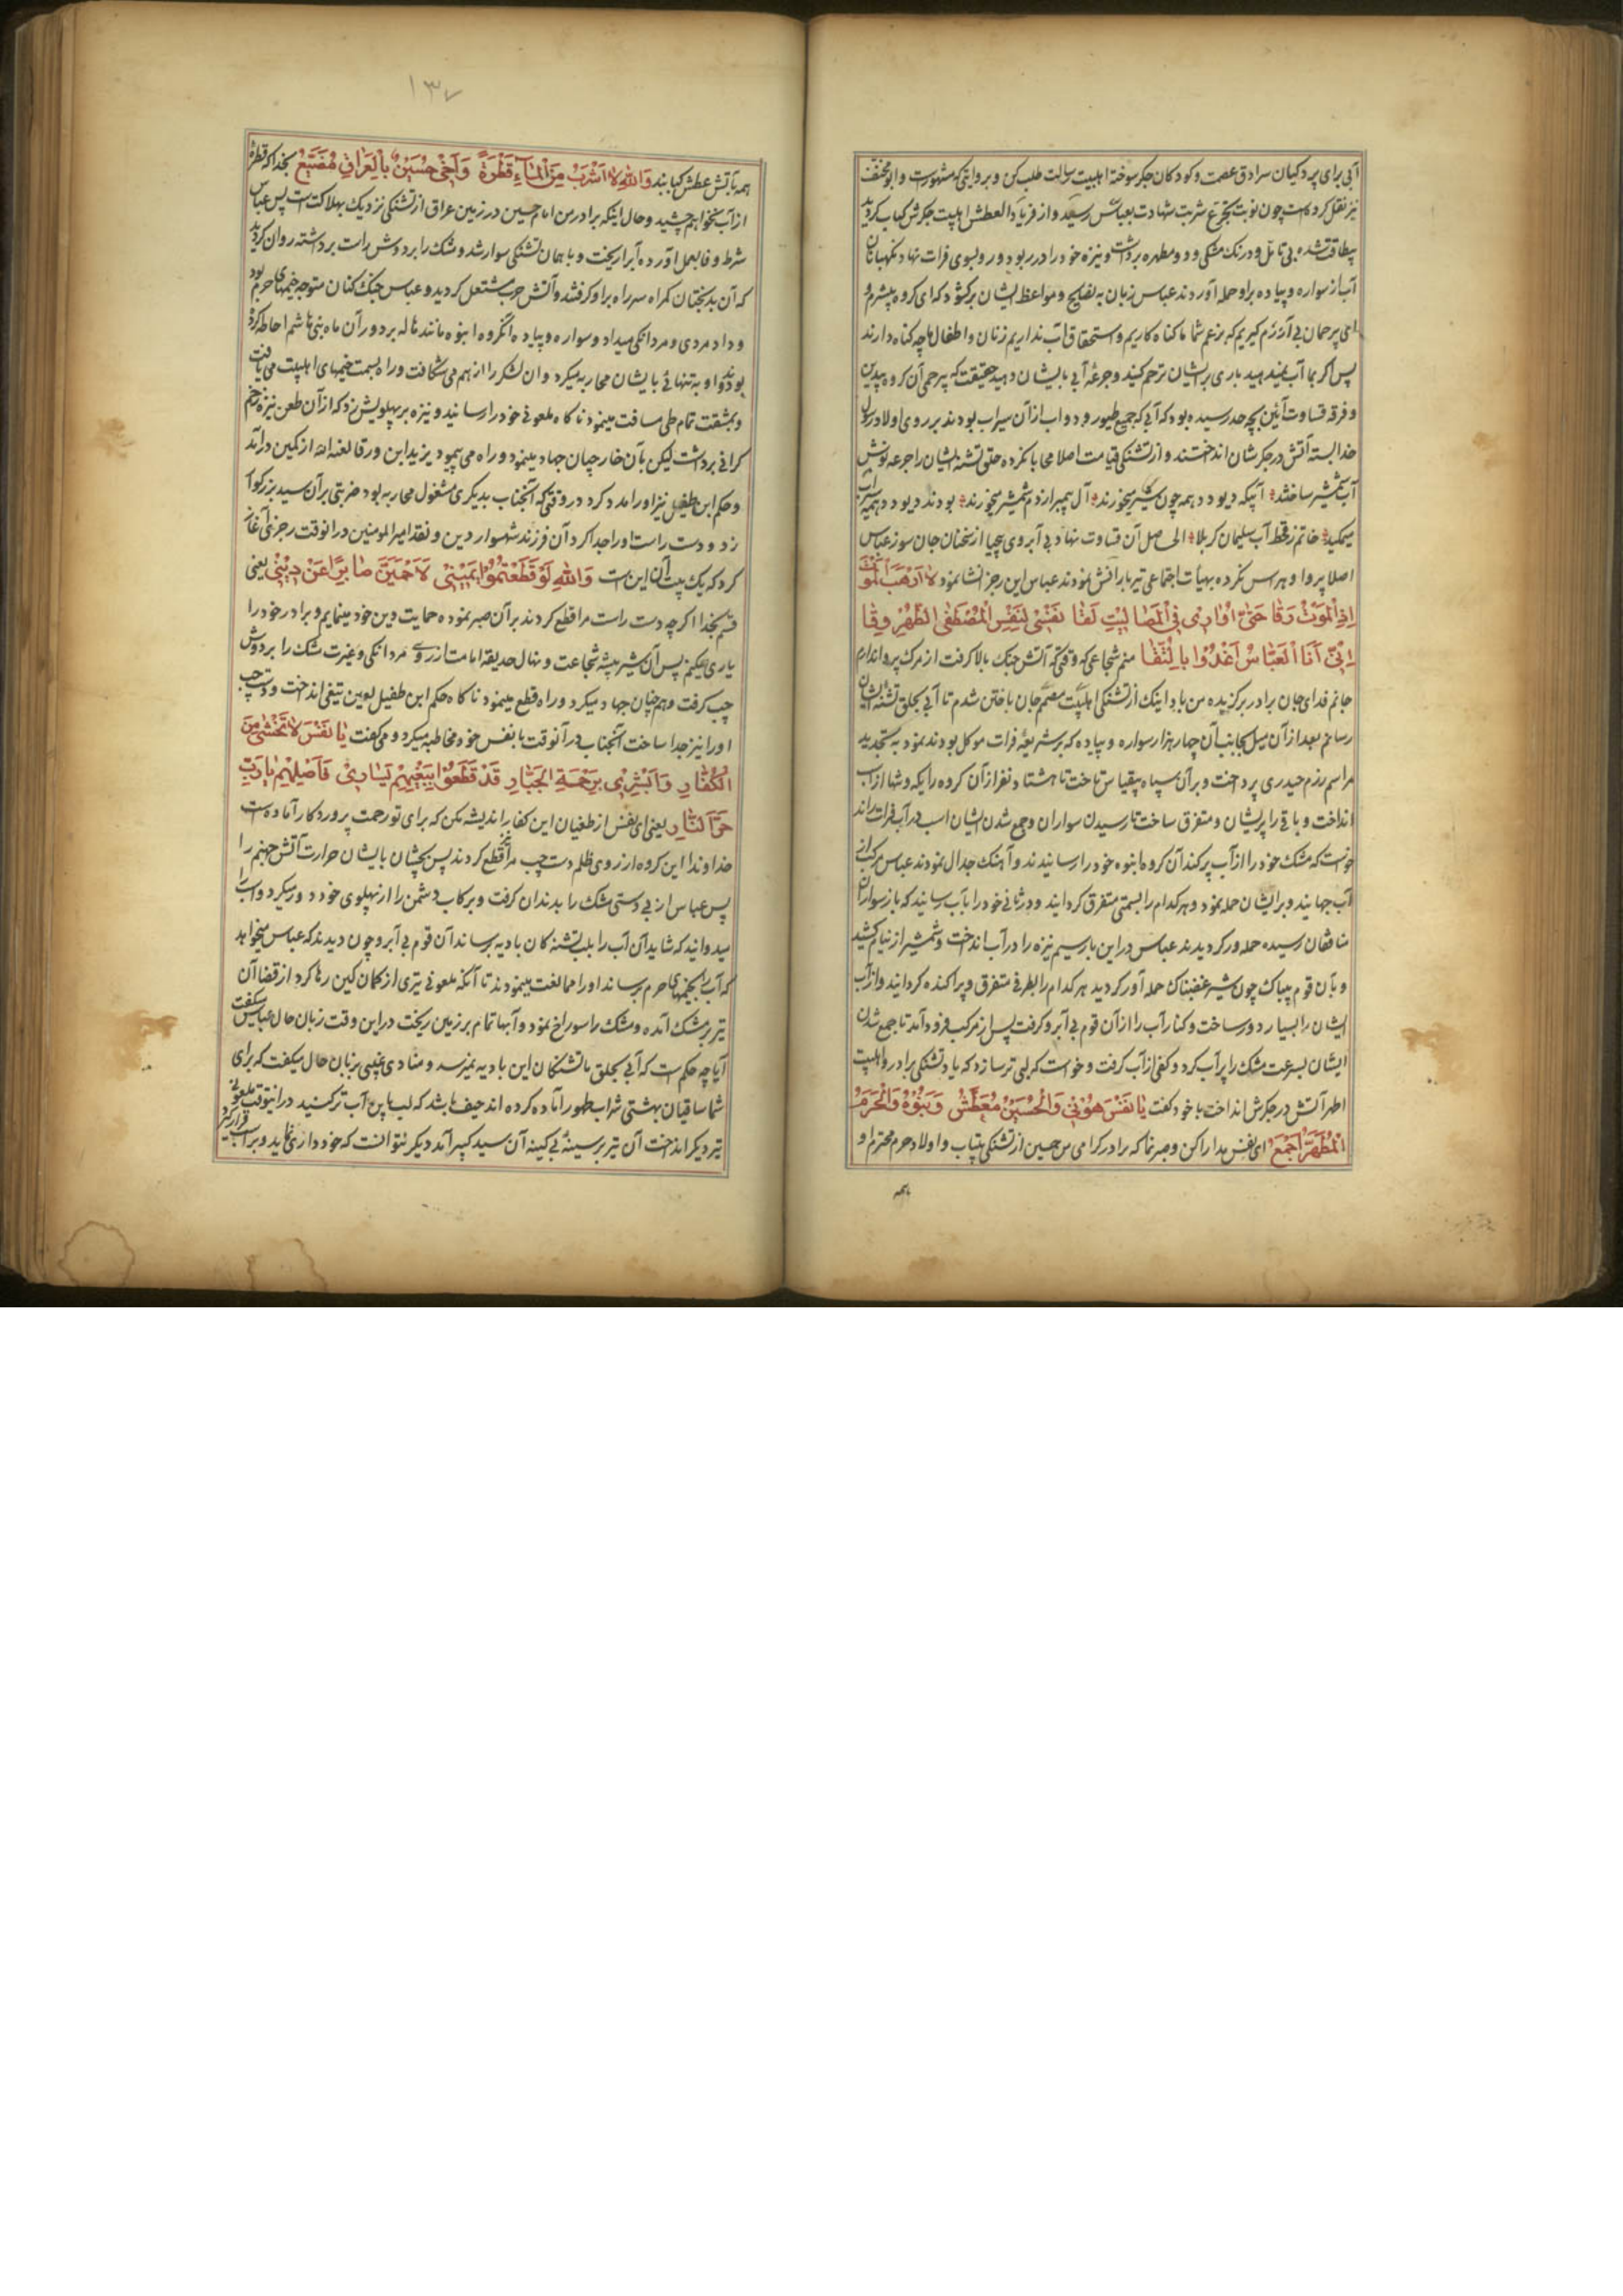 آبی برای پردکیان سرادق عصمت و کودکان جکر سوخته اهلبیت رسالت طلب کن و بروایتی که مشهورست و ابو مخنف
نیز نقل کرده است چون نوبت تجرع شربت شهادت بعباس رسید و از فریاد العطش اهلبیت جکرش کباب کردید
بیطاقت شده بی تامل و درنک مشکی و دو مطهره برداشت و نیزه خود را در ربود و رو بسوی فرات نهاد نکهبانان
آب از سواره و پیاده براو حمله آوردند عباس زبان به نصایح و مواعظ ایشان برکشود که ای کروه بیشرم و
ای بیرحمان بی آزرم کیریم که بزعم شما ما کناه کاریم و استحقاق آب نداریم زنان و اطفال ما چه کناه دارند
پس اکر بما آب نمیدهید باری برایشان ترحم کنید و جرعه آبی بایشان دهید حقیقت که بیرحمی آن کروه بیدین
و فرقه قساوت آئین بچه حد رسیده بود که آبی که جمیع طیور و دواب از آن سیراب بودند بر روی اولاد رسول
خدا بسته آتش در جکرشان انداختند و از تشنکی قیامت اصلا محابا نکرده حلق تشنه ایشان را جرعه نوش
آب شمشیر ساختند آبیکه دیو و دد همه چون شیر میخورند آل پیمبر از دم شمشیر میخورند بودند دیو و دد همه سیراب
میمکید خاتم ز قحط آب سلیمان کربلا الحاصل آن قساوت نهاد بی آبروی بیحیا از سخنان جان سوز عباس
اصلا پروا و هراس نکرده بهیأت اجتماعی تیر بارانش نمودند عباس این رجز انشا نمود لا ارهب الموت
اذا الموت رقا حتی اواری فی المصالیت لقا نفسی لنفس المصطفی الطهر وقا
انی انا العباس اغدوا بالسقا منم شجاعی که وقتی که آتش جنک بالا کرفت از مرک پروا ندارم
جانم فدای جان برادر برکزیده من باد اینک از تشنکی اهلبیت مصمم جان باختن شدم تا آبی بحلق تشنه ایشان
رسانم بعد از آن میل بجانب آن چهار هزار سواره و پیاده که بر شریعه فرات موکل بودند نمود به تجدید
مراسم رزم حیدری پرداخت و بر آن سپاه بیقیاس تاخت تا هشتاد نفر از آن کروه را یکه و تنها از اسب
انداخت و باقی را پریشان و متفرق ساخت تا رسیدن سواران و جمع شدن ایشان اسب در آب فرات راند
خواست که مشک خود را از آب پر کند آن کروه انبوه خود را رسانیدند و آهنک جدال نمودند عباس مرکب از
آب جهانید و برایشان حمله نمود و هر کدام را بسمتی متفرق کردانید و در ثانی خود را بآب رسانید که باز سواران
منافقان رسیده حمله ور کردیدند عباس در این بار سیم نیزه را در آب انداخت و شمشیر از نیام کشید
و بآن قوم بیباک چون شیر غضبناک حمله آور کردید هر کدام را بطرفی متفرق و پراکنده کردانید و از آب
ایشان را بسیار دور ساخت و کنار آب را از آن قوم بی آبرو کرفت پس از مرکب فرود آمد تا جمع شدن
ایشان بسرعت مشک را پر آب کرد و کفی از آب کرفت و خواست که لبی تر سازد که یاد تشنکی برادر و اهلبیت
اطهر آتش در جکرش انداخت با خود کفت یا نفس هونی والحسین معطش و بنوه والحرم
المطهر اجمع ای نفس مدارا کن و صبر نما که برادر کرامی من حسین از تشنکی بیتاب و اولاد و حرم محترم او
همه
۱۳۷
همه بآتش عطش کبابند والله لا اشرب من الماء قطرة واخی حسین بالعراق مضیع بخدا که قطره
از آب نخواهم چشید و حال اینکه برادر من امام حسین در زمین عراق از تشنکی نزدیک بهلاکت است پس عباس
شرط وفا بعمل آورده آبرا ریخت و با همان تشنکی سوار شد و مشک را بر دوش راست برداشته روان کردید
که آن بدبختان کمراه سر راه براو کرفتند و آتش حرب مشتعل کردید و عباس جنک کنان متوجه خیمهای حرم بود
و داد مردی و مردانکی میداد و سواره و پیاده آنکروه انبوه مانند هاله بر دور آن ماه بنی هاشم احاطه کرده
بودند و او به تنهائی بایشان محاربه میکرد و آن لشکر را از هم می شکافت و راه بسمت خیمهای اهلبیت می یافت
و بمشقت تمام طی مسافت مینمود ناکاه ملعونی خود را رسانید و نیزه بر پهلویش زد که از آن طعن نیزه زخم
کرانی برداشت لیکن بآن خارجیان جهاد مینمود و راه می پیمود یزید ابن ورقا لعنه الله از کمین درآمد
و حکم ابن طفیل نیز اورا مدد کرد در وقتی که آنجناب بدیکری مشغول محاربه بود ضربتی بر آن سید بزرکوار
زد و دست راست اورا جدا کرد آن فرزند شهسوار دین و نقد امیرالمومنین در انوقت رجزی آغاز
کرد که یک بیت آن این است والله لو قطعتموا یمینی لاحمین صابرا عن دینی یعنی
قسم بخدا اکر چه دست راست مرا قطع کردند بر آن صبر نموده حمایت دین خود مینمایم و برادر خود را
یاری میکنم پس آن شیر بیشه شجاعت و نهال حدیقه امامت از روی مردانکی و غیرت مشک را بر دوش
چپ کرفت و همچنان جهاد میکرد و راه قطع مینمود ناکاه حکم ابن طفیل لعین تیغی انداخت و دست چپ
اورا نیز جدا ساخت آنجناب در آنوقت با نفس خود مخاطبه میکرد و می کفت یا نفس لا تخشی من
الکفار وابشری برحمة الجبار قد قطعوا ببغیهم یساری فاصلهم یا رب
حر النار یعنی ای نفس از طغیان این کفار اندیشه مکن که برای تو رحمت پروردکار آماده است
خداوندا این کروه از روی ظلم دست چپ مرا قطع کردند پس بچشان بایشان حرارت آتش جهنم را
پس عباس از بی دستی مشک را بدندان کرفت و برکاب دشمن را از پهلوی خود دور میکرد و اسب
میدوانید که شاید آن آب را بلب تشنه کان بادیه برساند آن قوم بی آبرو چون دیدند که عباس میخواهد
که آب را بخیمهای حرم برساند اورا ممانعت مینمودند تا آنکه ملعونی تیری از کمان کین رها کرد از قضا آن
تیر بر مشک آمده و مشک را سوراخ نمود و آبها تمام بر زمین ریخت در این وقت زبان حال عباس میکفت
آیا چه حکم است که آبی بحلق ما تشنکان این بادیه نمیرسد و منادی غیبی بزبان حال میکفت که برای
شما ساقیان بهشتی شراب طهور آماده کرده اند حیف باشد که لب باین آب تر کنید در اینوقت ملعونی
تیر دیکر انداخت آن تیر بر سینه بی کینه آن سید کبیر آمد دیکر نتوانست که خودداری نماید و بر اسب قرار کیرد